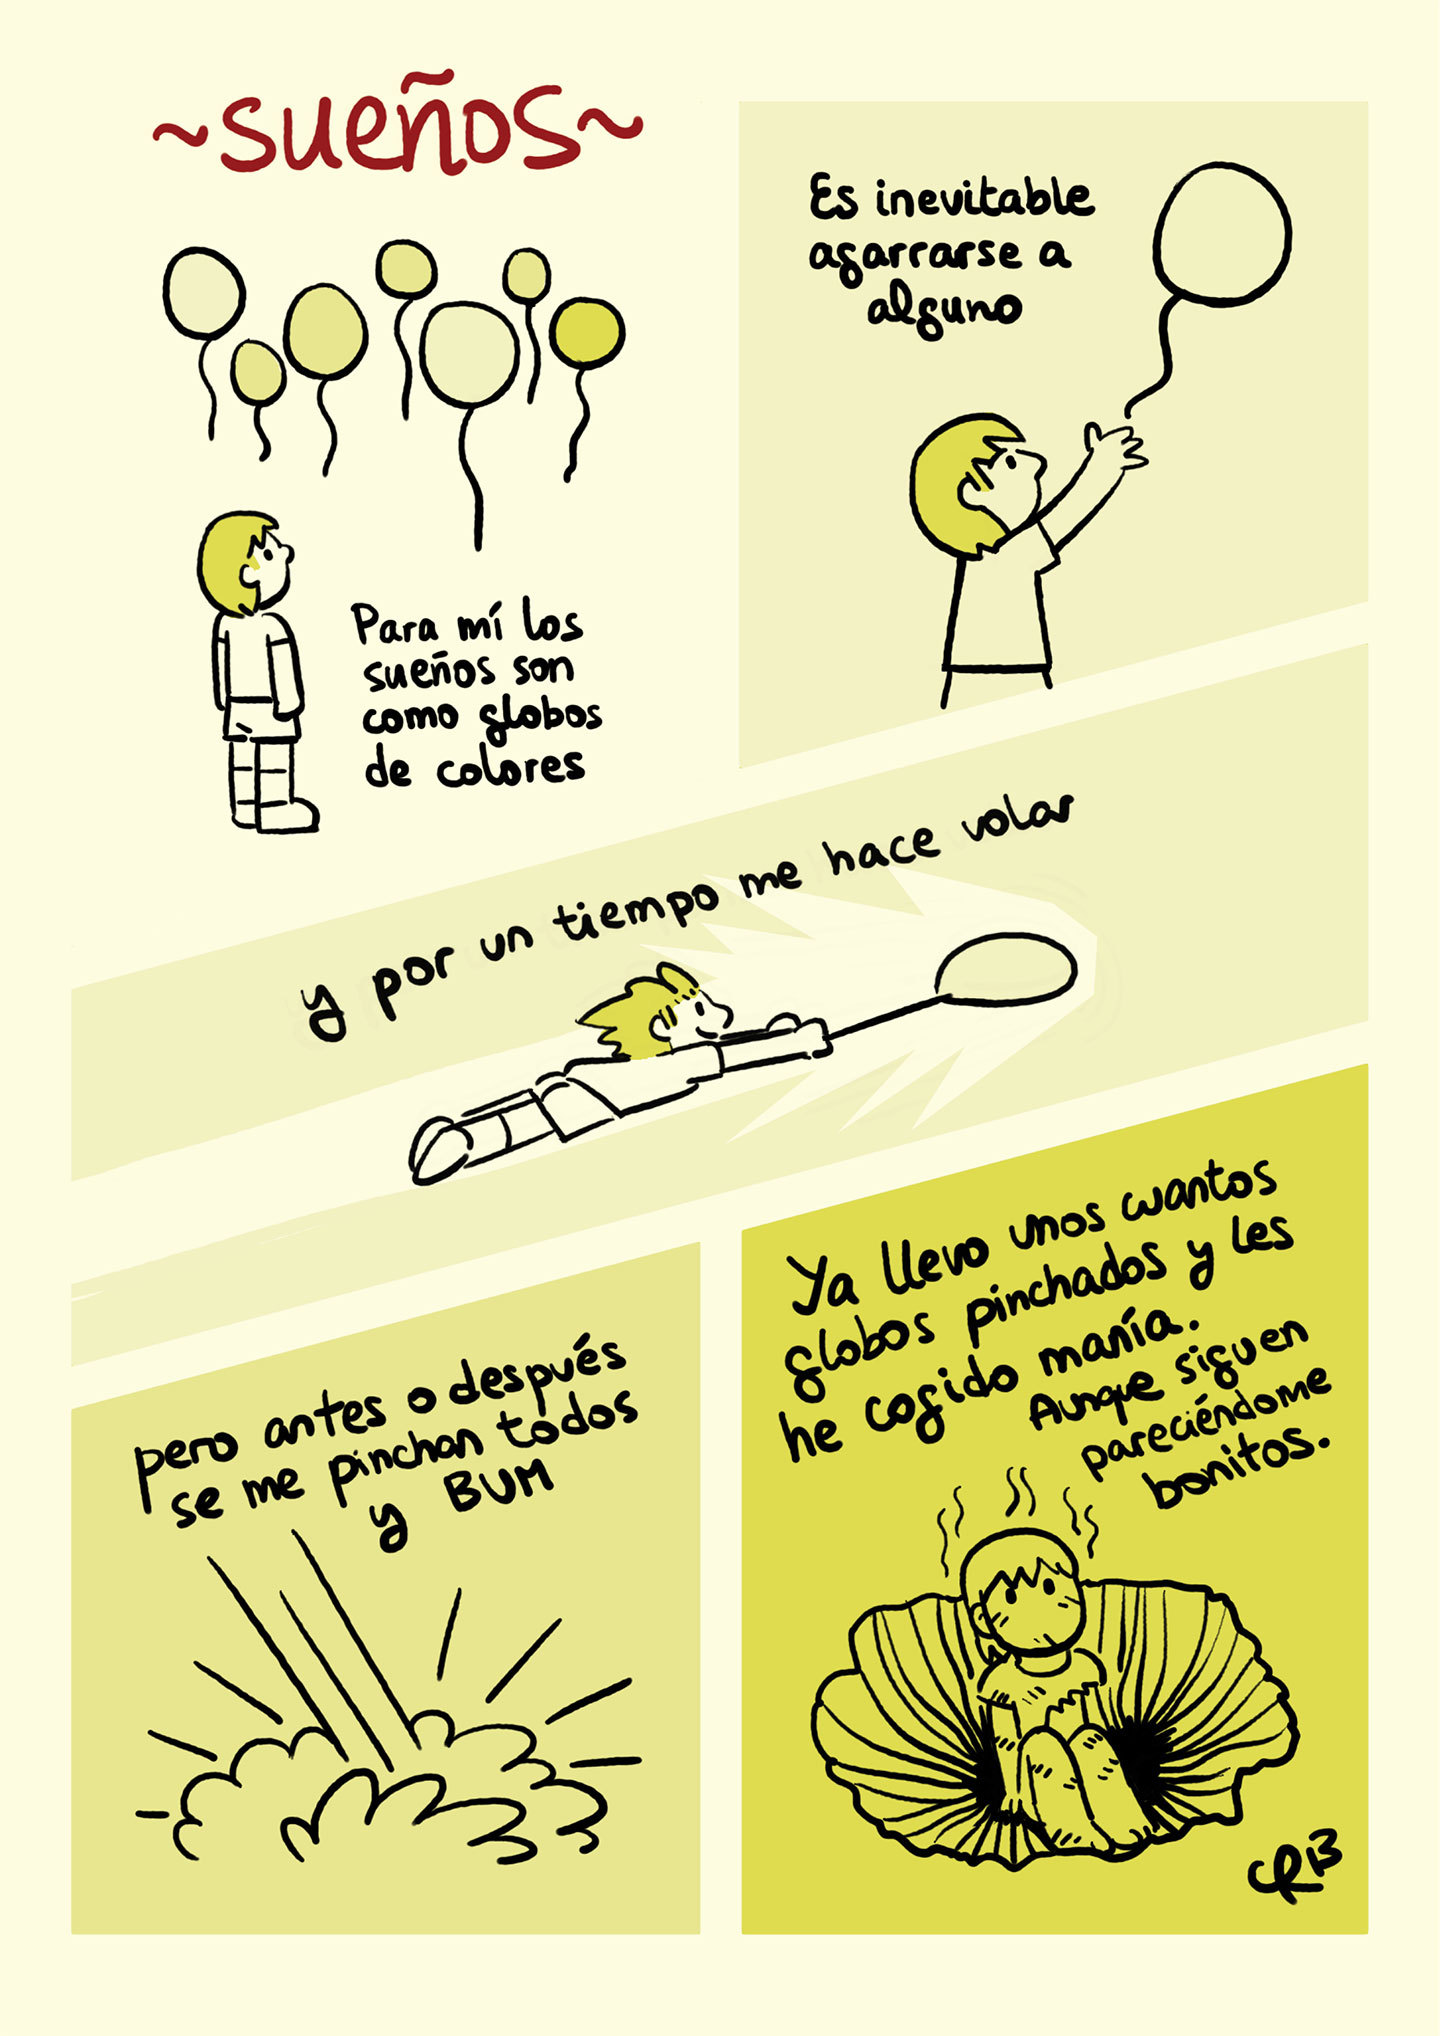 ~sueños~
Para mí los
sueños son
como globos
de colores
Es inevitable
agarrarse a
alguno
y por un tiempo me hace volar
pero antes o después
se me pinchan todos
y BUM
Ya llevo unos cuantos
globos pinchados y les
he cogido manía.
Aunque siguen
pareciéndome
bonitos.